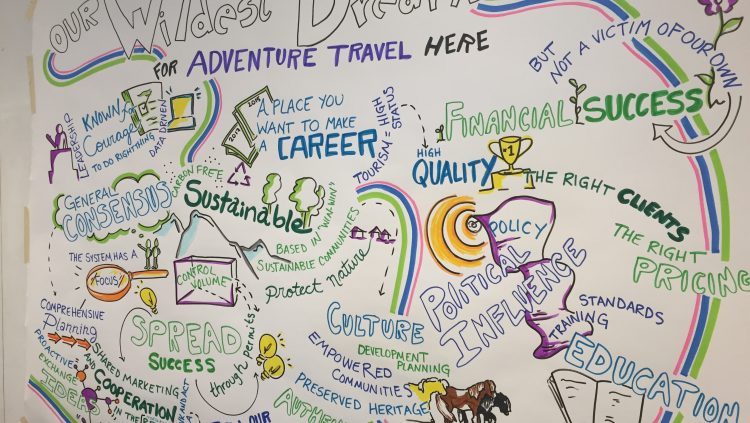 OUR Wildest Dreams
FOR ADVENTURE TRAVEL HERE
BUT
NOT A VICTIM OF OUR OWN
SUCCESS
LEADERSHIP
KNOWN for
Courage
TO DO RIGHT THING
DATA DRIVEN
A PLACE YOU
WANT TO MAKE
A CAREER
TOURISM = HIGH
STATUS
FINANCIAL
HIGH
QUALITY
#1
THE RIGHT CLIENTS
THE RIGHT
PRICING
GENERAL
CONSENSUS
CARBON FREE
Sustainable
BASED IN "WIN-WIN"
SUSTAINABLE COMMUNITIES
protect Nature
THE SYSTEM HAS A
FOCUS
CONTROL
VOLUME
POLICY
POLITICAL
INFLUENCE
STANDARDS
TRAINING
EDUCATION
COMPREHENSIVE
Planning
PROACTIVE
EXCHANGE
IDEAS
SPREAD
SUCCESS
through permits
SHARED MARKETING
AND
COOPERATION
IN THE
CULTURE
DEVELOPMENT
PLANNING
EMPOWERED
COMMUNITIES
PRESERVED HERITAGE
OUR